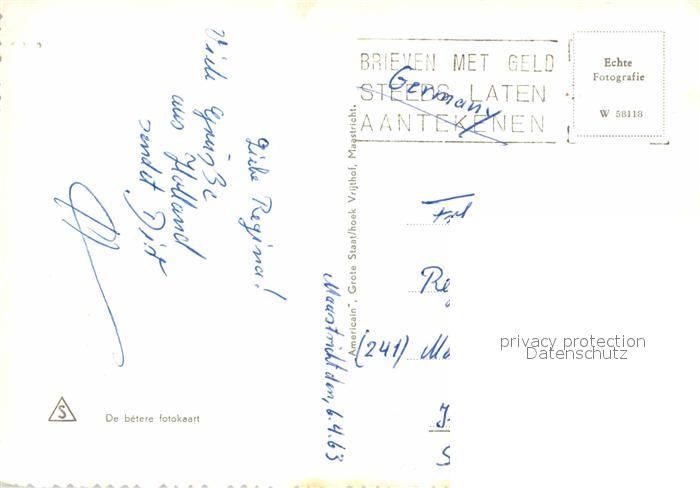 BRIEVEN MET GELD
STEEDS LATEN
AANTEKENEN
Germany
Echte
Fotografie
W 58118
Maastricht den, 6.4.63
Liebe Regina!
Viele Grüße
aus Holland
sendet Dir
Americain", Grote Staat/hoek Vrijthof, Maastricht.
(241)
privacy protection
Datenschutz
S
De bétere fotokaart